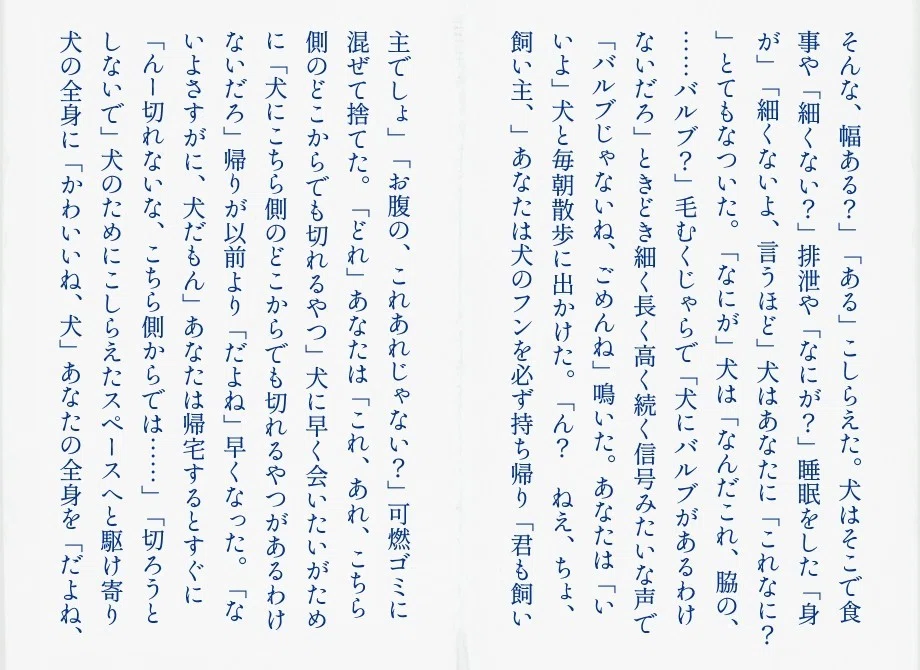 そんな、幅ある？」「ある」こしらえた。犬はそこで食
事や「細くない？」排泄や「なにが？」睡眠をした「身
が」「細くないよ、言うほど」犬はあなたに「これなに？
」とてもなついた。「なにが」犬は「なんだこれ、脇の、
……バルブ？」毛むくじゃらで「犬にバルブがあるわけ
ないだろ」ときどき細く長く高く続く信号みたいな声で
「バルブじゃないね、ごめんね」鳴いた。あなたは「い
いよ」犬と毎朝散歩に出かけた。「ん？　ねえ、ちょ、
飼い主、」あなたは犬のフンを必ず持ち帰り「君も飼い
主でしょ」「お腹の、これあれじゃない？」可燃ゴミに
混ぜて捨てた。「どれ」あなたは「これ、あれ、こちら
側のどこからでも切れるやつ」犬に早く会いたいがため
に「犬にこちら側のどこからでも切れるやつがあるわけ
ないだろ」帰りが以前より「だよね」早くなった。「な
いよさすがに、犬だもん」あなたは帰宅するとすぐに
「んー切れないな、こちら側からでは……」「切ろうと
しないで」犬のためにこしらえたスペースへと駆け寄り
犬の全身に「かわいいね、犬」あなたの全身を「だよね、